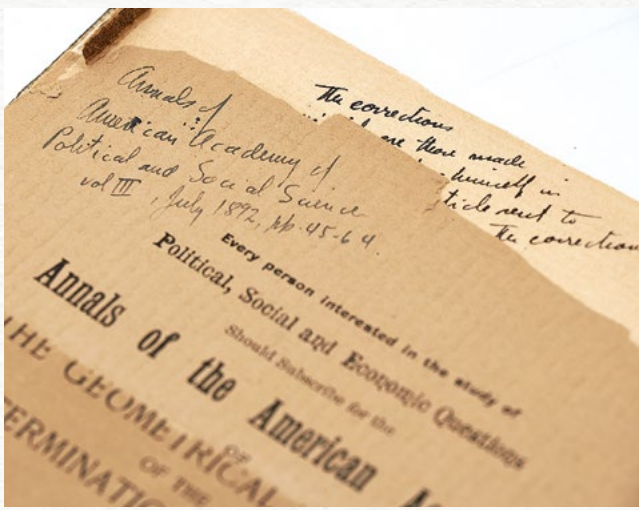 Annals of
American Academy of
Political and Social Science
vol III, July 1892, pp. 45-64.
The corrections
are those made
himself in
ticle sent to
The corrections
Every person interested in the study of
Political, Social and Economic Questions
Should Subscribe for the
Annals of the American A
HE GEOMETRICAL
OF THE
ERMINATI